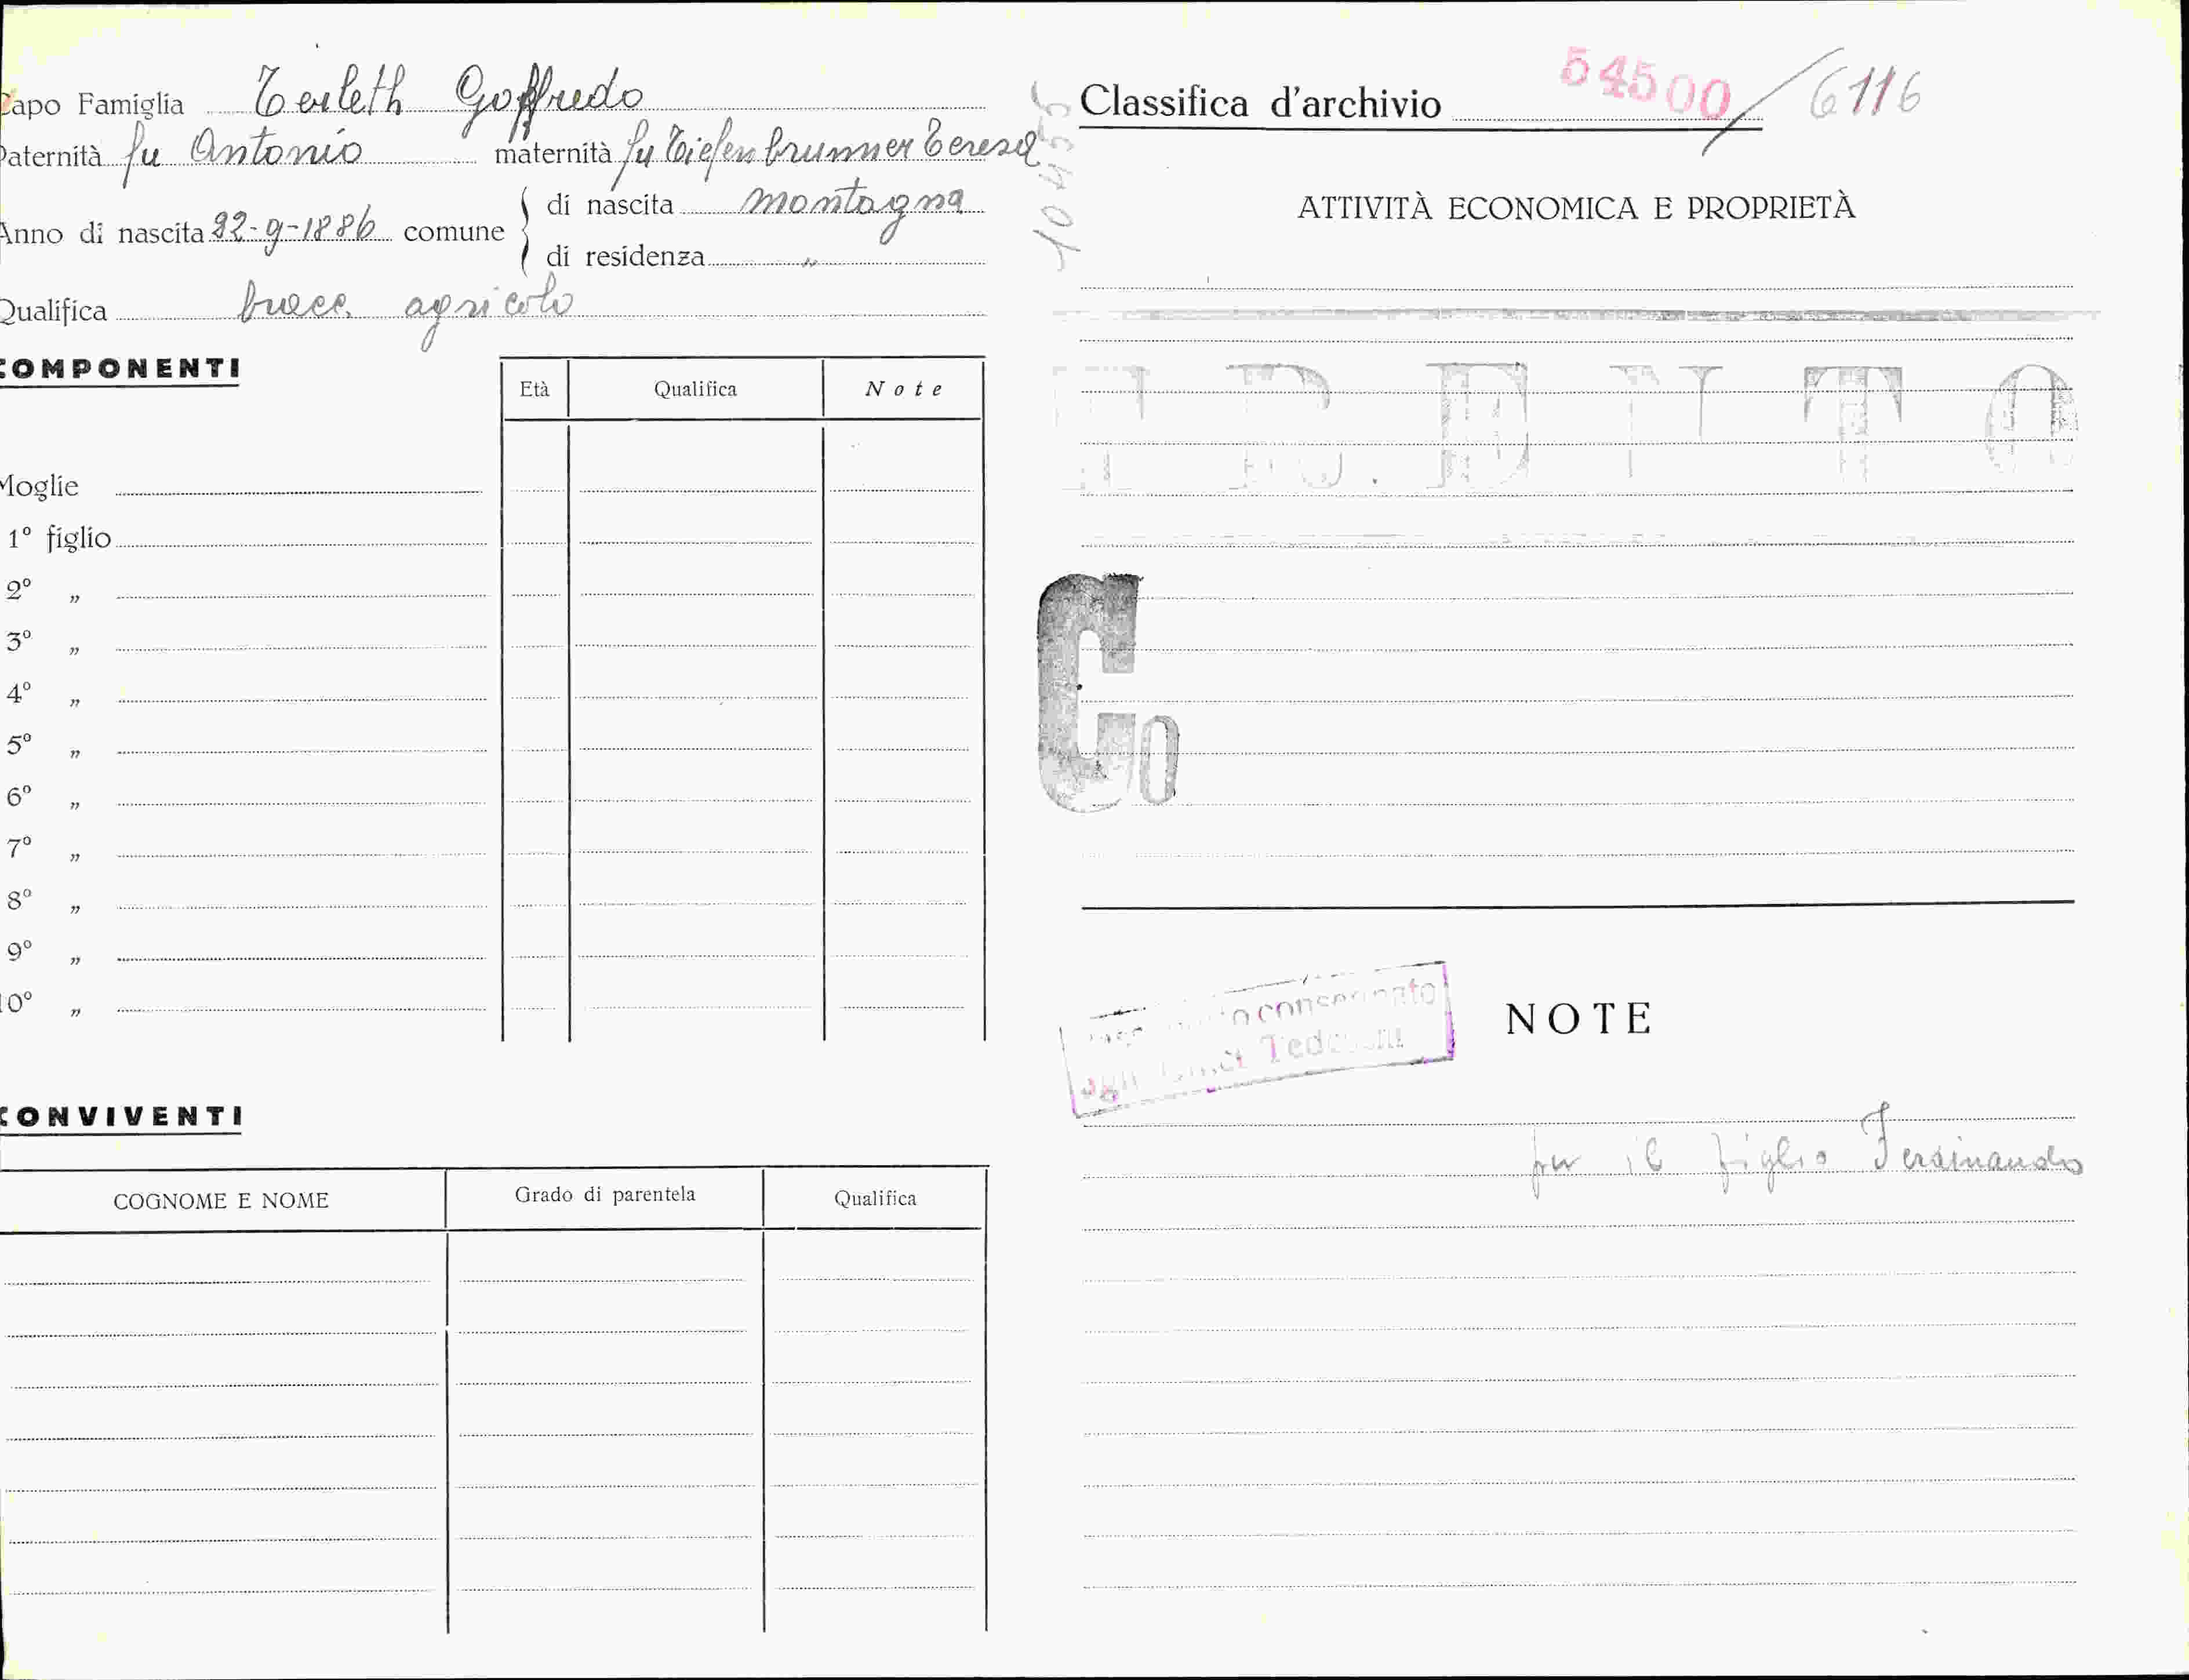 Capo Famiglia Terleth Goffredo
Paternità fu Antonio maternità fu Tiefenbrunner Teresa
Anno di nascita 22-9-1886 comune di nascita montagna
di residenza "
Qualifica bracc. agricolo
COMPONENTI
Età Qualifica Note
Moglie
1º figlio
2º "
3º "
4º "
5º "
6º "
7º "
8º "
9º "
10º "
CONVIVENTI
COGNOME E NOME Grado di parentela Qualifica
Classifica d'archivio 54500/6116
10455
ATTIVITÀ ECONOMICA E PROPRIETÀ
Co
consegnato
agli Uffici Tedeschi
NOTE
per il figlio Ferdinando